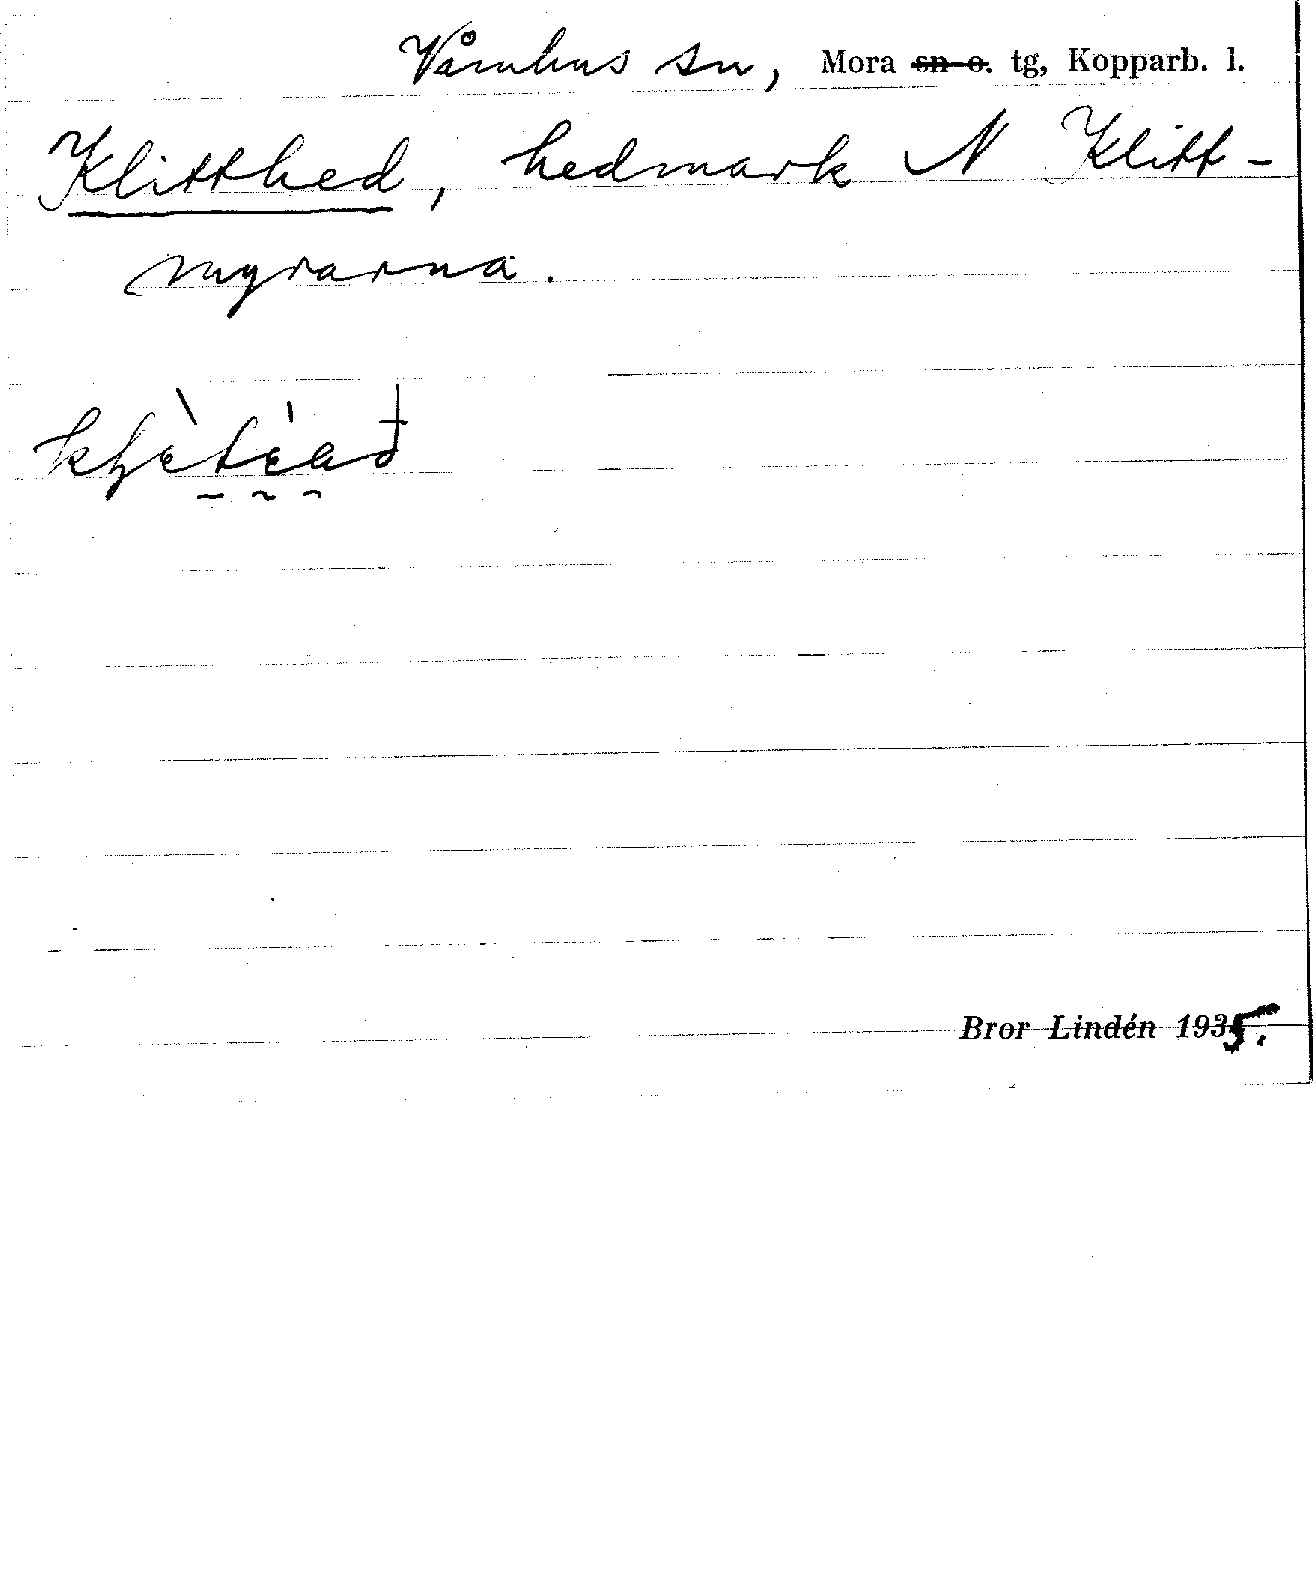 Våmhus sn, Mora sn o. tg, Kopparb. l.
Klitthed, hedmark N Klitt-
myrarna.
Bror Lindén 1935.